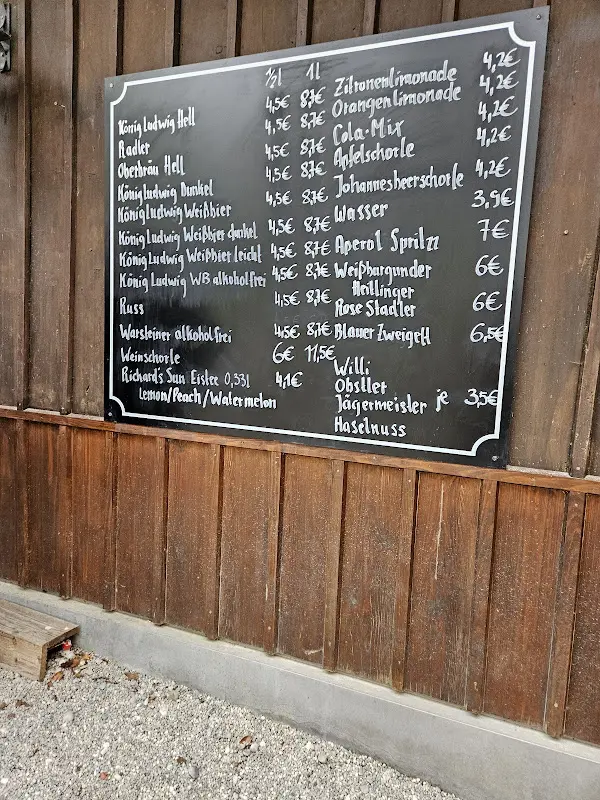 ½l 1l
König Ludwig Hell 4,5€ 8,7€
Radler 4,5€ 8,7€
Oberbräu Hell 4,5€ 8,7€
König Ludwig Dunkel 4,5€ 8,7€
König Ludwig Weißbier 4,5€ 8,7€
König Ludwig Weißbier dunkel 4,5€ 8,7€
König Ludwig Weißbier leicht 4,5€ 8,7€
König Ludwig WB alkoholfrei 4,5€ 8,7€
Russ 4,5€ 8,7€
Warsteiner alkoholfrei 4,5€ 8,7€
Weinschorle 6€ 11,5€
Richard's Sun Eistee 0,33l 4,1€
Lemon/Peach/Watermelon
Zitronenlimonade 4,2€
Orangenlimonade 4,2€
Cola-Mix 4,2€
Apfelschorle 4,2€
Johannesbeerschorle 4,2€
Wasser 3,9€
Aperol Spritzz 7€
Weißburgunder 6€
Heitlinger
Rose Stadler 6€
Blauer Zweigelt 6,5€
Willi
Obstler
Jägermeister je 3,5€
Haselnuss